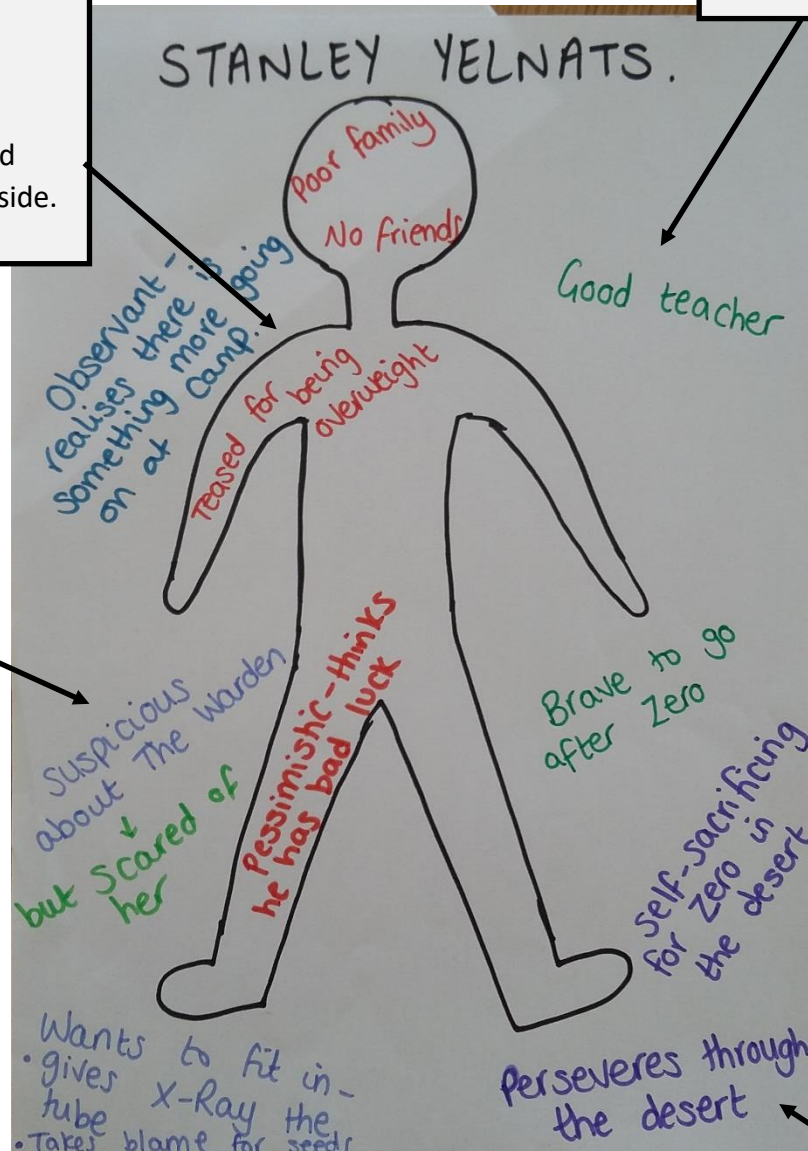 d
side.
STANLEY YELNATS.
Poor family
No friends
Observant -
realises there is
something more going
on at camp.
Good teacher
Teased for being
overweight
Suspicious
about The Warden
↓
but scared of
her
Pessimishic - thinks
he has bad luck
Brave to go
after Zero
Self-sacrificing
for Zero in
the desert
Wants to fit in -
• gives X-Ray the
tube
• Takes blame for seeds
Perseveres through
the desert